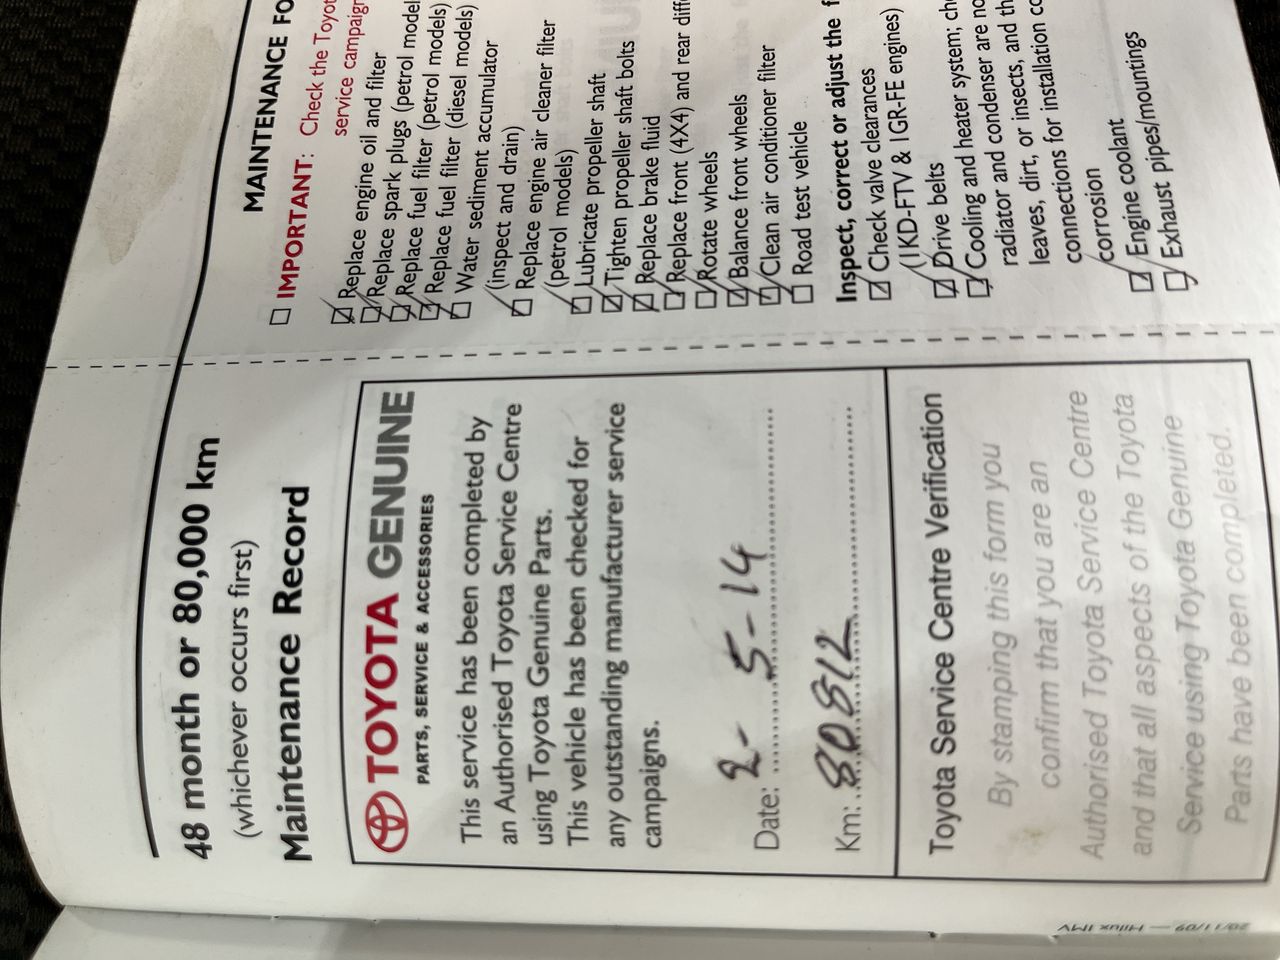 48 month or 80,000 km
(whichever occurs first)
Maintenance Record
TOYOTA GENUINE
PARTS, SERVICE & ACCESSORIES
This service has been completed by
an Authorised Toyota Service Centre
using Toyota Genuine Parts.
This vehicle has been checked for
any outstanding manufacturer service
campaigns.
Date: 2-5-14
Km: 80812
Toyota Service Centre Verification
By stamping this form you
confirm that you are an
Authorised Toyota Service Centre
and that all aspects of the Toyota
Service using Toyota Genuine
Parts have been completed.
MAINTENANCE FO
IMPORTANT: Check the Toyot
service campaign
Replace engine oil and filter
Replace spark plugs (petrol model
Replace fuel filter (petrol models)
Replace fuel filter (diesel models)
Water sediment accumulator
(inspect and drain)
Replace engine air cleaner filter
(petrol models)
Lubricate propeller shaft
Tighten propeller shaft bolts
Replace brake fluid
Replace front (4X4) and rear diff
Rotate wheels
Balance front wheels
Clean air conditioner filter
Road test vehicle
Inspect, correct or adjust the f
Check valve clearances
(1KD-FTV & 1GR-FE engines)
Drive belts
Cooling and heater system; ch
radiator and condenser are no
leaves, dirt, or insects, and th
connections for installation co
corrosion
Engine coolant
Exhaust pipes/mountings
20/11/09 — Hilux IMV